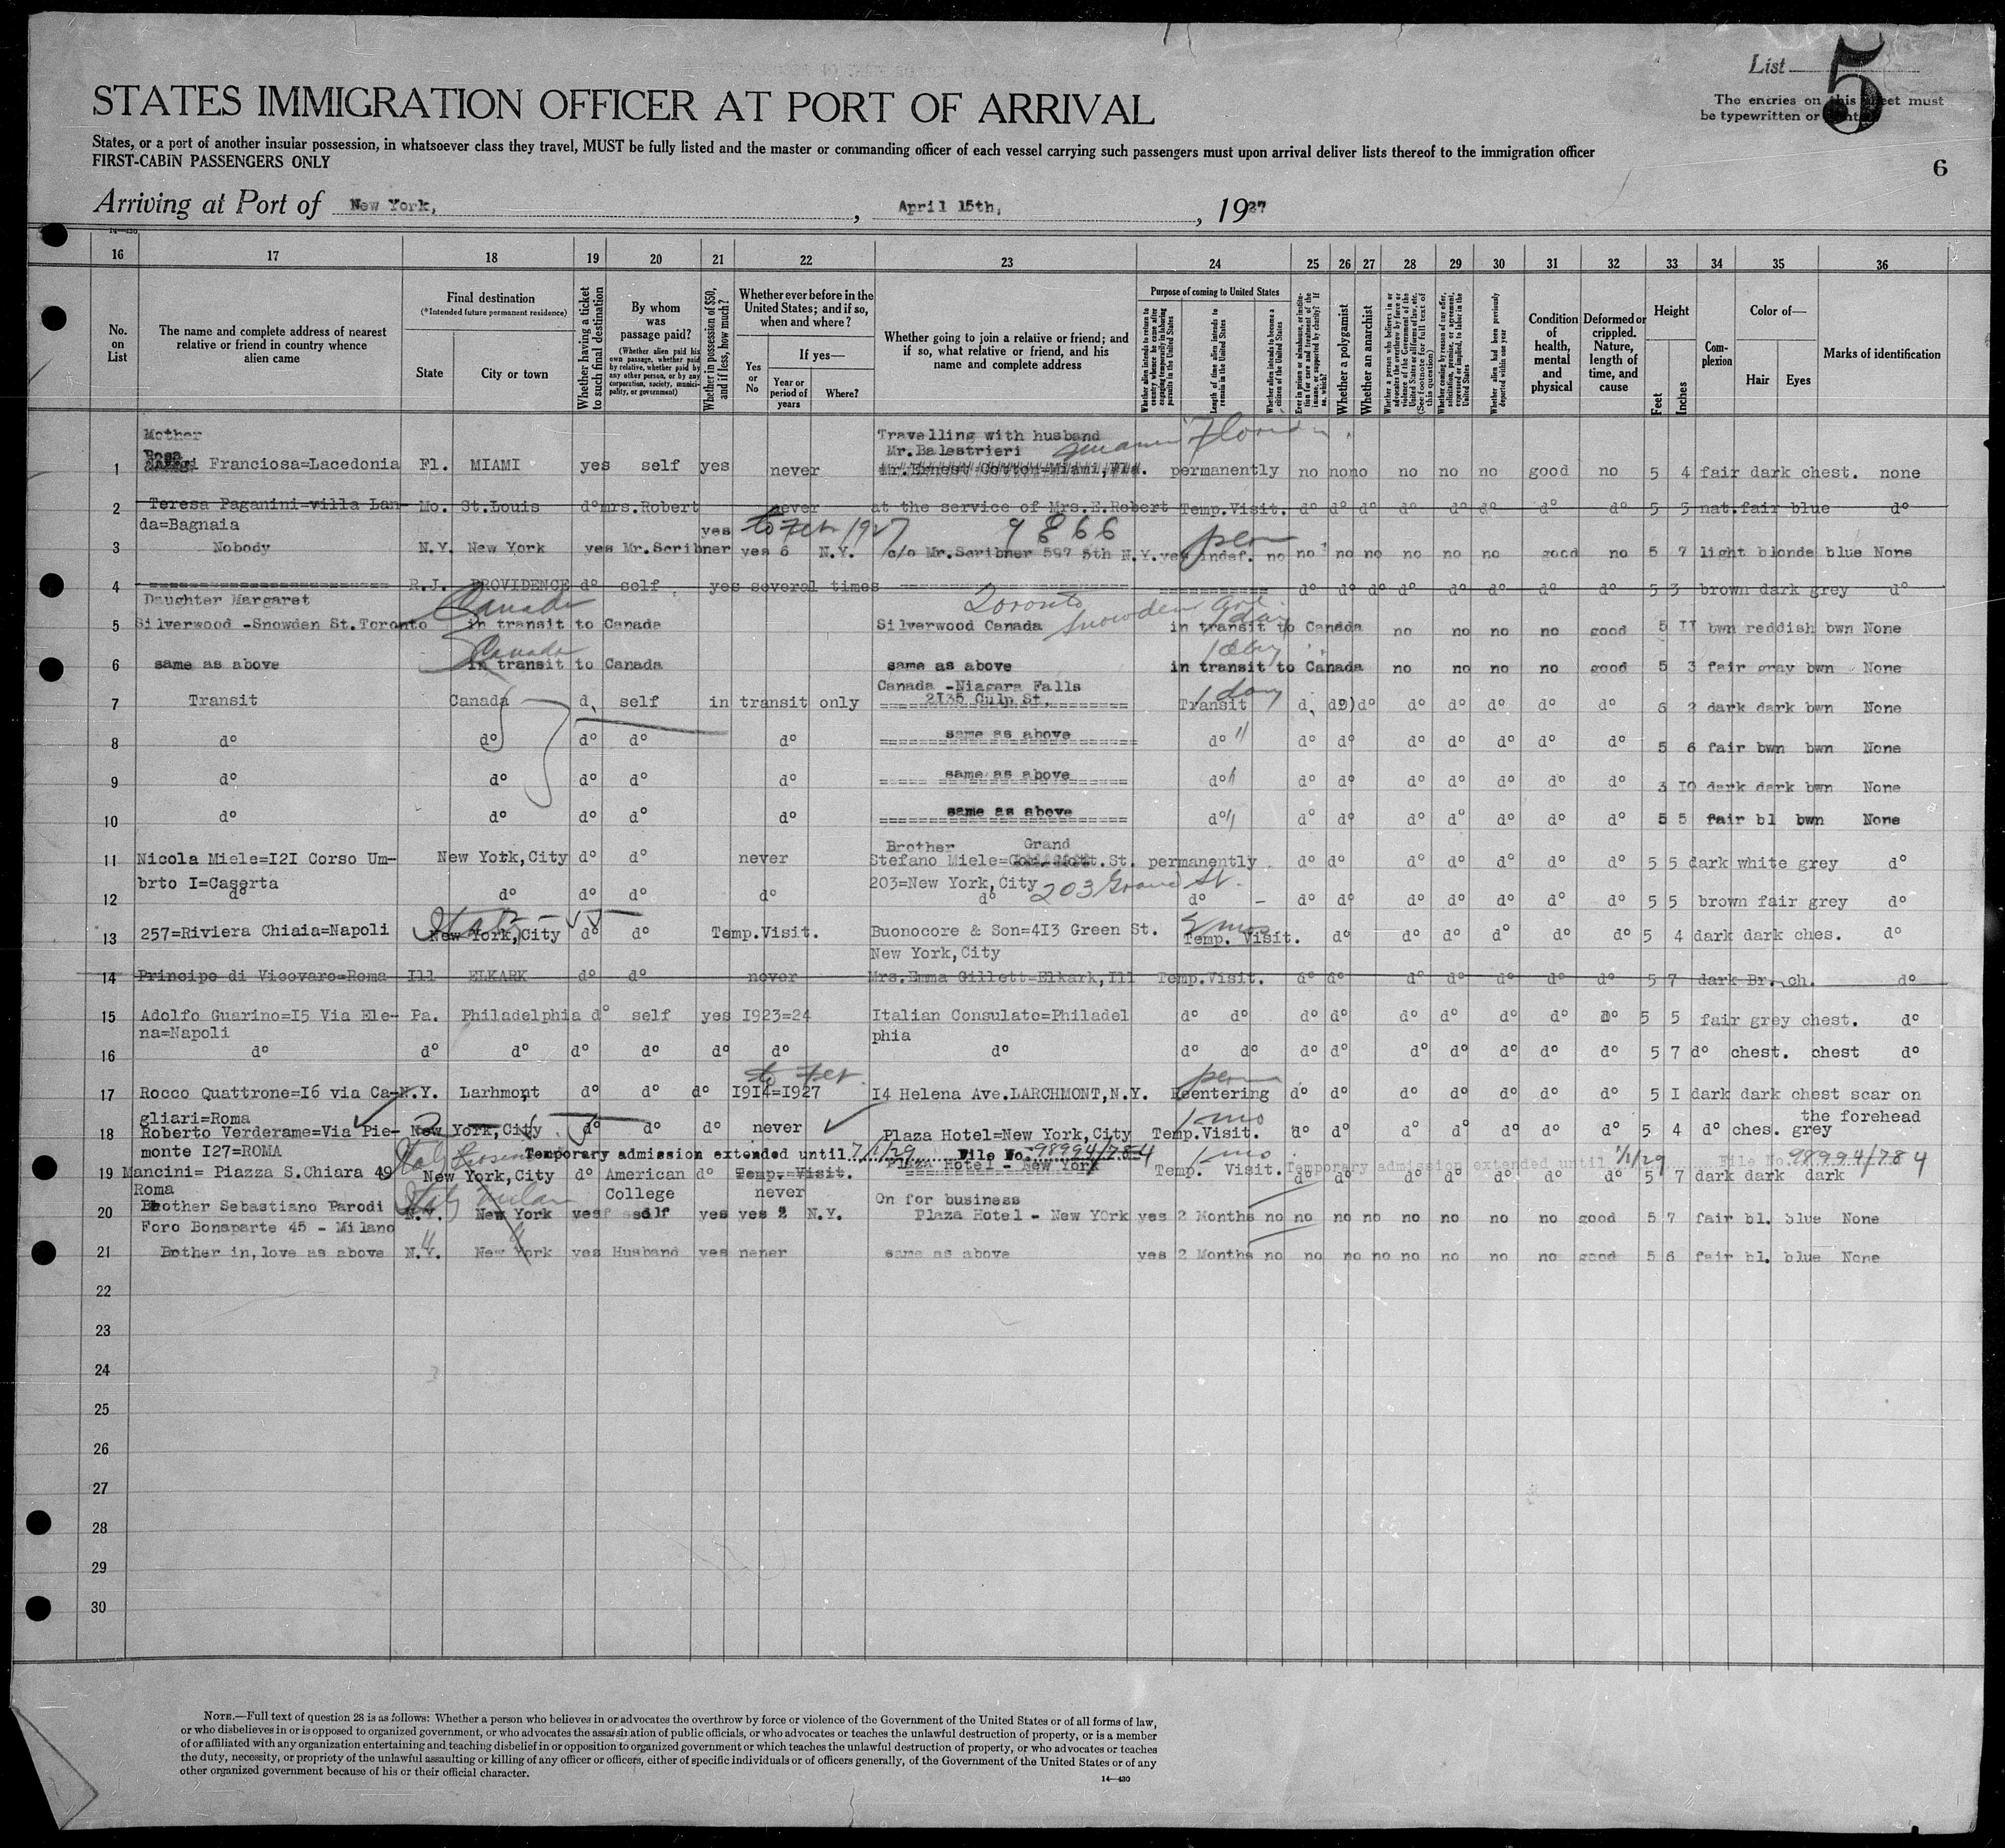 List 5
STATES IMMIGRATION OFFICER AT PORT OF ARRIVAL
The entries on this sheet must
be typewritten or
States, or a port of another insular possession, in whatsoever class they travel, MUST be fully listed and the master or commanding officer of each vessel carrying such passengers must upon arrival deliver lists thereof to the immigration officer
FIRST-CABIN PASSENGERS ONLY
6
Arriving at Port of New York, , April 15th, , 1927
14—430
16 17 18 19 20 21 22 23 24 25 26 27 28 29 30 31 32 33 34 35 36
No. on List
The name and complete address of nearest relative or friend in country whence alien came
Final destination
(*Intended future permanent residence)
State
City or town
Whether having a ticket to such final destination
By whom was passage paid?
(Whether alien paid his own passage, whether paid by relative, whether paid by any other person, or by any corporation, society, municipality, or government)
Whether in possession of $50, and if less, how much?
Whether ever before in the United States; and if so, when and where?
Yes or No
If yes—
Year or period of years
Where?
Whether going to join a relative or friend; and if so, what relative or friend, and his name and complete address
Purpose of coming to United States
Whether alien intends to return to country whence he came after engaging temporarily in laboring pursuits in the United States
Length of time alien intends to remain in the United States
Whether alien intends to become a citizen of the United States
Ever in prison or almshouse, or institution for care and treatment of the insane, or supported by charity? If so, which?
Whether a polygamist
Whether an anarchist
Whether a person who believes in or advocates the overthrow by force or violence of the Government of the United States or all forms of law, etc. (See footnote for full text of this question)
Whether coming by reason of any offer, solicitation, promise, or agreement, expressed or implied, to labor in the United States
Whether alien had been previously deported within one year
Condition of health, mental and physical
Deformed or crippled. Nature, length of time, and cause
Height
Feet
Inches
Complexion
Color of—
Hair
Eyes
Marks of identification
Mother Travelling with husband Florida
Rosa Mr. Balestrieri
1 Franciosa=Lacedonia Fl. MIAMI yes self yes never Mr. Ernest Cotton=Miami, Fla. permanently no no no no no no good no 5 4 fair dark chest. none
2 Teresa Paganini=villa Lan- Mo. St.Louis d° mrs.Robert never at the service of Mrs.E.Robert Temp.Visit. d° d° d° d° d° d° d° d° 5 5 nat.fair blue d°
da=Bagnaia yes to Feb 1927 9866 perm
3 Nobody N.Y. New York yes Mr.Scribner yes 6 N.Y. c/o Mr.Scribner 597 5th N.Y. yes indef. no no no no no no no good no 5 7 light blonde blue None
4 R.J. PROVIDENCE d° self yes several times d° d° d° d° d° d° d° d° 5 3 brown dark grey d°
Daughter Margaret Canada Toronto Snowden ave. 1 day
5 Silverwood -Snowden St.Toronto in transit to Canada Silverwood Canada in transit to Canada no no no no good 5 II bwn reddish bwn None
Canada 1 day
6 same as above in transit to Canada same as above in transit to Canada no no no no good 5 3 fair gray bwn None
Canada -Niagara Falls
7 Transit Canada d, self in transit only 2135 Culp St. Transit 1 day d, d°) d° d° d° d° d° d° 6 2 dark dark bwn None
8 d° d° d° d° d° same as above d° " d° d° d° d° d° d° d° 5 6 fair bwn bwn None
9 d° d° d° d° d° same as above d° " d° d° d° d° d° d° d° 3 IO dark dark bwn None
10 d° d° d° d° d° same as above d° " d° d° d° d° d° d° d° 5 5 fair bl bwn None
Brother Grand
11 Nicola Miele=I2I Corso Um- New York,City d° d° never Stefano Miele= St. permanently d° d° d° d° d° d° d° 5 5 dark white grey d°
brto I=Caserta 203=New York,City 203 Grand St.
12 d° d° d° d° d° d° d° - d° d° d° d° d° d° d° 5 5 brown fair grey d°
Italy 2 mos
13 257=Riviera Chiaia=Napoli New York,City d° d° Temp.Visit. Buonocore & Son=4I3 Green St. Temp. Visit. d° d° d° d° d° d° 5 4 dark dark ches. d°
New York,City
14 Principe di Vicovaro=Roma Ill ELKARK d° d° never Mrs.Emma Gillett=Elkark,Ill Temp.Visit. d° d° d° d° d° d° d° 5 7 dark Br. ch. d°
15 Adolfo Guarino=I5 Via Ele- Pa. Philadelphia d° self yes I923=24 Italian Consulate=Philadel d° d° d° d° d° d° d° d° d° 5 5 fair grey chest. d°
na=Napoli phia
16 d° d° d° d° d° d° d° d° d° d° d° d° d° d° d° d° d° 5 7 d° chest. chest d°
to Feb. perm
17 Rocco Quattrone=I6 via Ca- N.Y. Larhmont d° d° d° I9I4=I927 I4 Helena Ave.LARCHMONT,N.Y. Reentering d° d° d° d° d° d° d° 5 I dark dark chest scar on
gliari=Roma 1 mo the forehead
18 Roberto Verderame=Via Pie- New York,City d° d° d° never Plaza Hotel=New York,City Temp.Visit. d° d° d° d° d° d° d° 5 4 d° ches. grey
monte I27=ROMA Italy Temporary admission extended until 7/1/29 File No. 98994/784 1 mo Temporary admission extended until 1/1/29 File No. 98994/784
19 Mancini= Piazza S.Chiara 49 New York,City d° American d° Temp.=Visit. Plaza Hotel - New York Temp. Visit. d° d° d° d° d° d° d° 5 7 dark dark dark
Roma College never On for business
Brother Sebastiano Parodi Italy Milan
20 N.Y. New York yes self yes yes 2 N.Y. Plaza Hotel - New YOrk yes 2 Months no no no no no no no no good 5 7 fair bl. blue None
Foro Bonaparte 45 - Milano
21 Bother in,love as above N.Y. New York yes Husband yes nener same as above yes 2 Months no no no no no no no no good 5 6 fair bl. blue None
22
23
24
25
26
27
28
29
30
NOTE.—Full text of question 28 is as follows: Whether a person who believes in or advocates the overthrow by force or violence of the Government of the United States or of all forms of law,
or who disbelieves in or is opposed to organized government, or who advocates the assassination of public officials, or who advocates or teaches the unlawful destruction of property, or is a member
of or affiliated with any organization entertaining and teaching disbelief in or opposition to organized government or which teaches the unlawful destruction of property, or who advocates or teaches
the duty, necessity, or propriety of the unlawful assaulting or killing of any officer or officers, either of specific individuals or of officers generally, of the Government of the United States or of any
other organized government because of his or their official character.
14—430